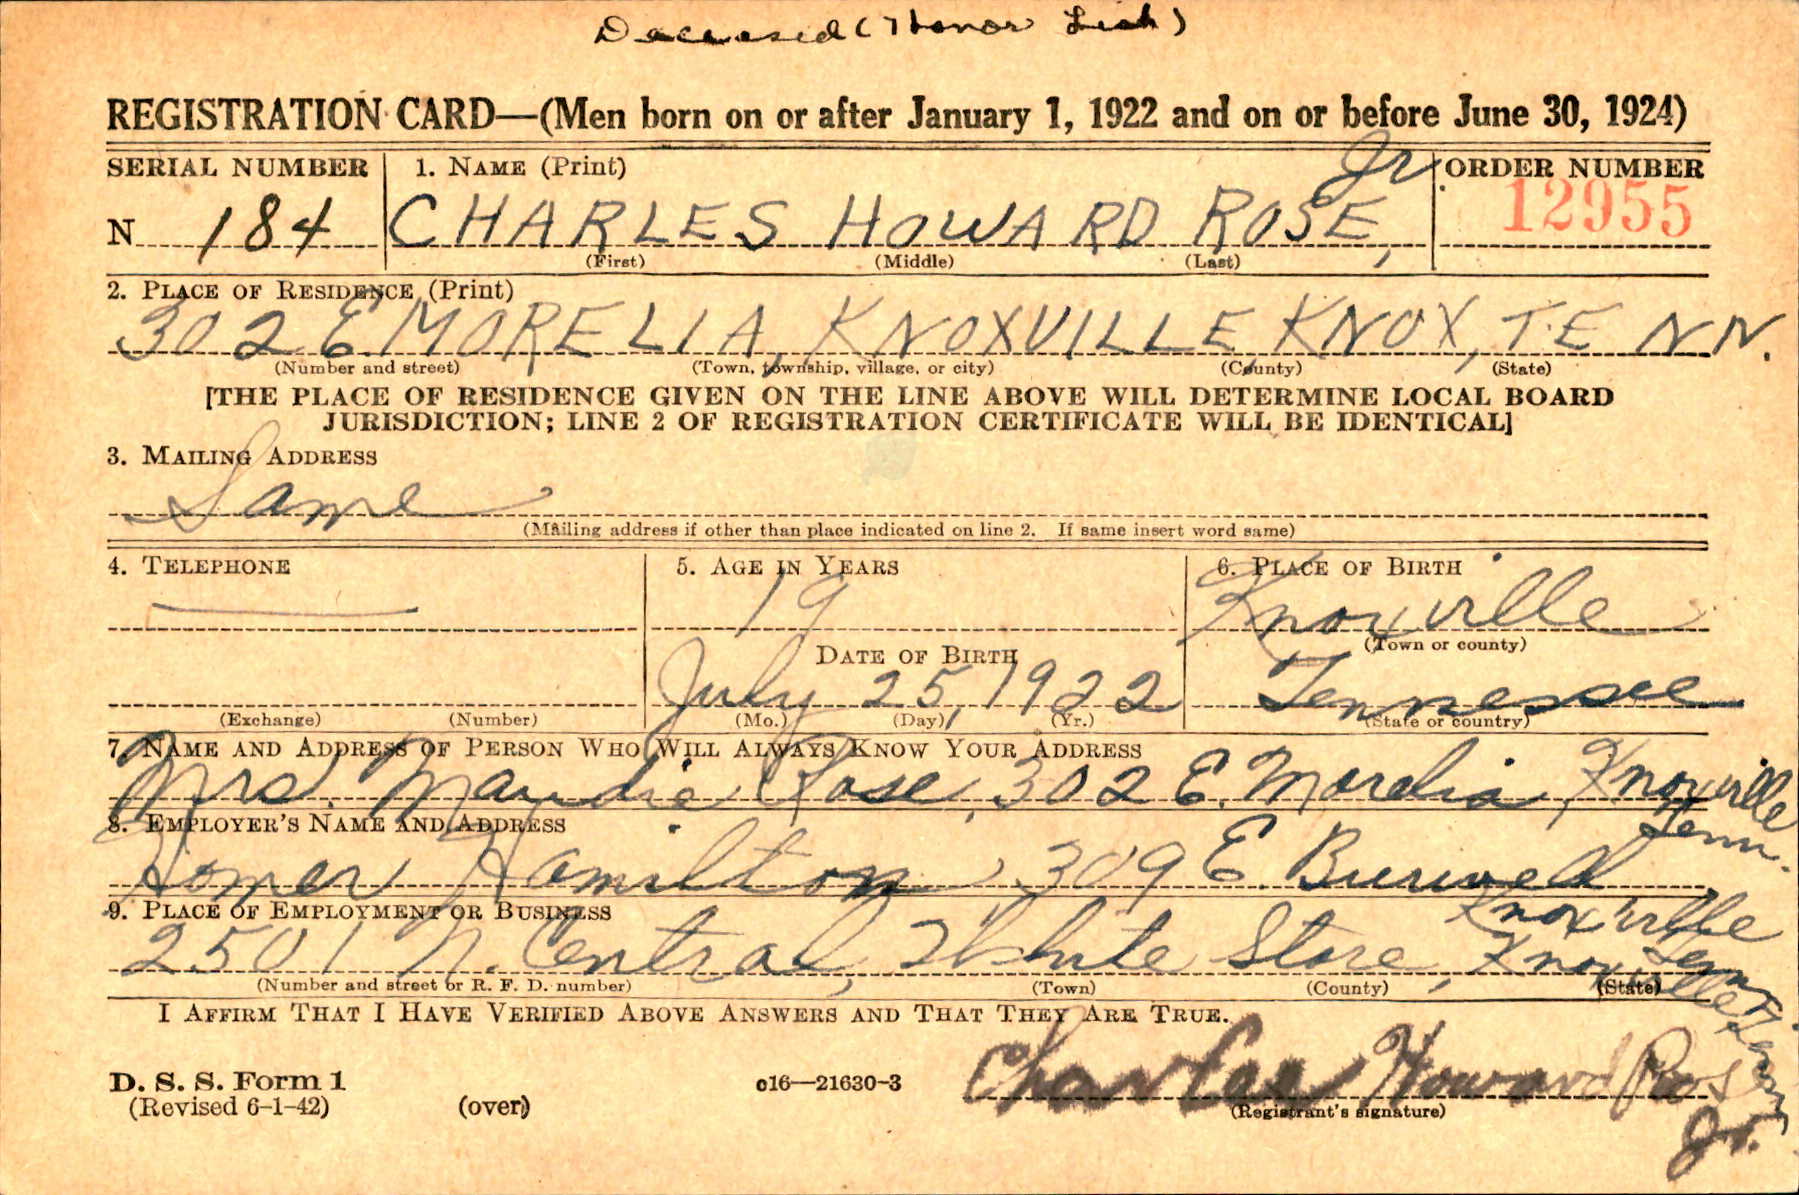 Deceased (Honor List)
REGISTRATION CARD—(Men born on or after January 1, 1922 and on or before June 30, 1924)
SERIAL NUMBER
1. NAME (Print)
Jr
ORDER NUMBER
N 184
CHARLES HOWARD ROSE,
12955
(First) (Middle) (Last)
2. PLACE OF RESIDENCE (Print)
302 E MORELIA, KNOXVILLE, KNOX, TENN.
(Number and street) (Town, township, village, or city) (County) (State)
[THE PLACE OF RESIDENCE GIVEN ON THE LINE ABOVE WILL DETERMINE LOCAL BOARD
JURISDICTION; LINE 2 OF REGISTRATION CERTIFICATE WILL BE IDENTICAL]
3. MAILING ADDRESS
Same
(Mailing address if other than place indicated on line 2. If same insert word same)
4. TELEPHONE
5. AGE IN YEARS
6. PLACE OF BIRTH
19
Knoxville
(Town or county)
DATE OF BIRTH
July 25, 1922
Tennessee
(Exchange) (Number) (Mo.) (Day) (Yr.) (State or country)
7. NAME AND ADDRESS OF PERSON WHO WILL ALWAYS KNOW YOUR ADDRESS
Mrs. Maudie Rose, 302 E. Morelia, Knoxville
Tenn.
8. EMPLOYER'S NAME AND ADDRESS
Homer Hamilton, 309 E. Burwell,
Knoxville
Tenn.
9. PLACE OF EMPLOYMENT OR BUSINESS
2501 N. Central, White Store, Knoxville, Tenn.
(Number and street or R. F. D. number) (Town) (County) (State)
I AFFIRM THAT I HAVE VERIFIED ABOVE ANSWERS AND THAT THEY ARE TRUE.
D. S. S. Form 1
(Revised 6-1-42) (over)
c16—21630-3
Charles Howard Rose
Jr.
(Registrant's signature)